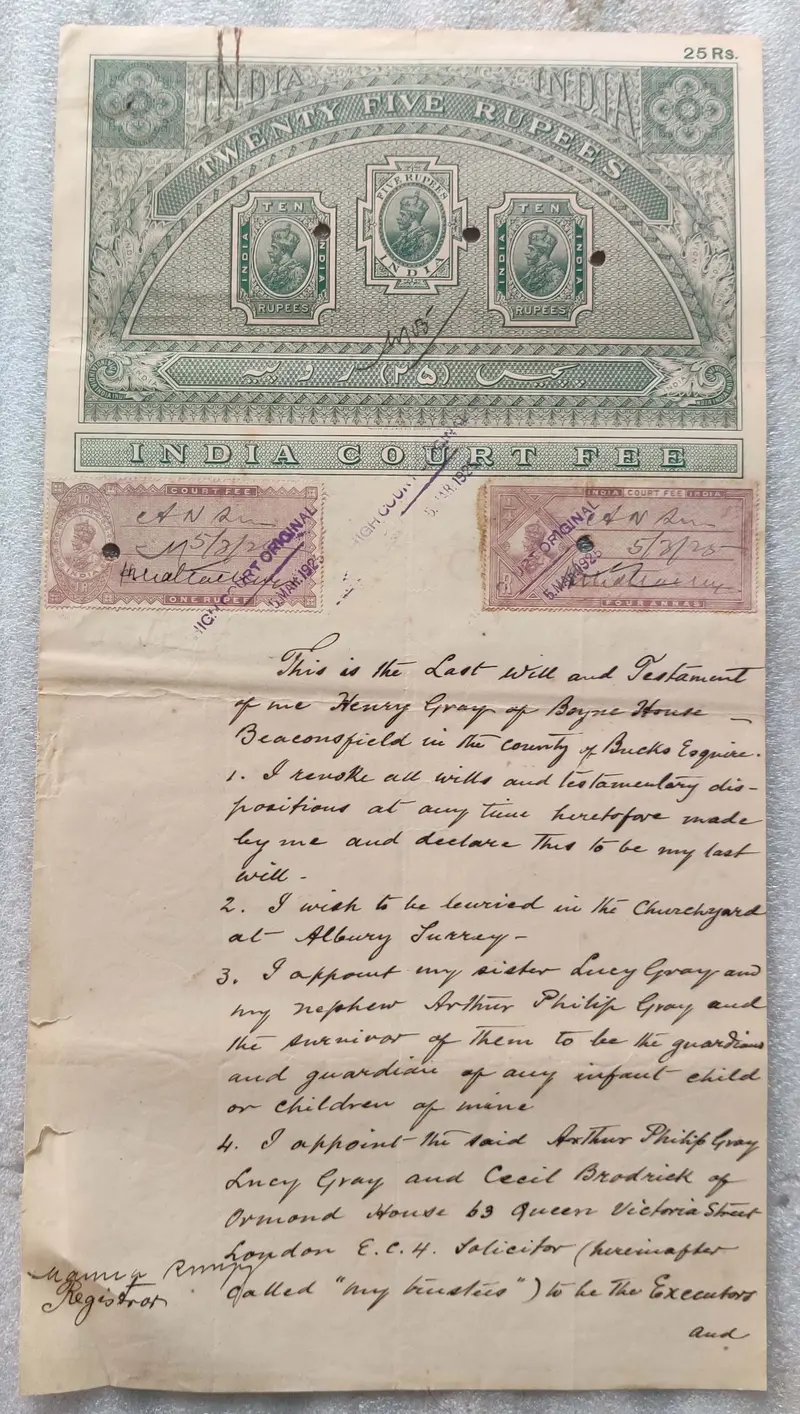 25 Rs.
INDIA INDIA
TWENTY FIVE RUPEES
TEN
INDIA INDIA
RUPEES
FIVE RUPEES
INDIA
TEN
INDIA INDIA
RUPEES
پچیس (۲۵) روپیہ
INDIA COURT FEE
HIGH COURT ORIGINAL
5. MAR. 1925
COURT FEE
INDIA
A N
5/3/25
ONE RUPEE
HIGH COURT ORIGINAL
5. MAR. 1925
INDIA COURT FEE INDIA
A N
5/3/25
FOUR ANNAS
COURT ORIGINAL
5. MAR. 1925
This is the Last Will and Testament
of me Henry Gray of Boyne House
Beaconsfield in the county of Bucks Esquire.
1. I revoke all wills and testamentary dis-
positions at any time heretofore made
by me and declare this to be my last
will -
2. I wish to be buried in the Churchyard
at Albury Surrey -
3. I appoint my sister Lucy Gray and
my nephew Arthur Philip Gray and
the survivor of them to be the guardians
and guardian of any infant child
or children of mine
4. I appoint the said Arthur Philip Gray
Lucy Gray and Cecil Brodrick of
Ormond House 63 Queen Victoria Street
London E.C.4. Solicitor (hereinafter
called "my trustees") to be the Executors
and
Registrar